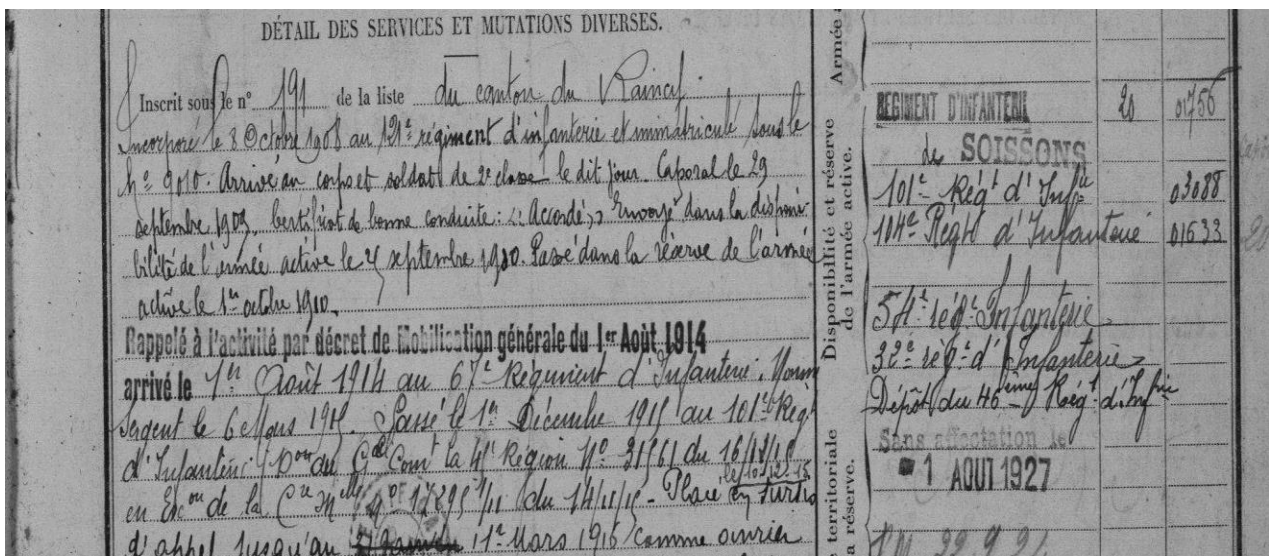 DÉTAIL DES SERVICES ET MUTATIONS DIVERSES.
Inscrit sous le n° 191 de la liste du canton du Raincy
Incorporé le 8 Octobre 1908 au régiment d'infanterie et immatriculé sous le
n° 9010. Arrivé au corps et soldat de 2e classe le dit jour. Caporal le 29
septembre 1909. Certificat de bonne conduite : "Accordé". Envoyé dans la disponi-
bilité de l'armée active le septembre 1910. Passé dans la réserve de l'armée
active le 1er octobre 1910.
Rappelé à l'activité par décret de Mobilisation générale du 1er Août 1914
arrivé le Août 1914 au 67e Régiment d'Infanterie. Nommé
Sergent le 6 Mars 1915. Passé le 1er Décembre 1915 au 101e Régt
d'Infanterie Don du Gal Comt la 4e Région N° du
en Exon de la Cre Mlle N° du 14/11/15 - Placé en sursis
d'appel jusqu'au 1er Mars 1916 comme ouvrier
Armée
Disponibilité et réserve
de l'armée active.
territoriale
a réserve.
REGIMENT D'INFANTERIE 20 01756
de SOISSONS
101e Régt d'Infie 03088
104e Régt d'Infanterie 01633
54e régt Infanterie
32e régt d'Infanterie
Dépôt du 46ème Régt d'Infie
Sans affectation le
1 AOUT 1927